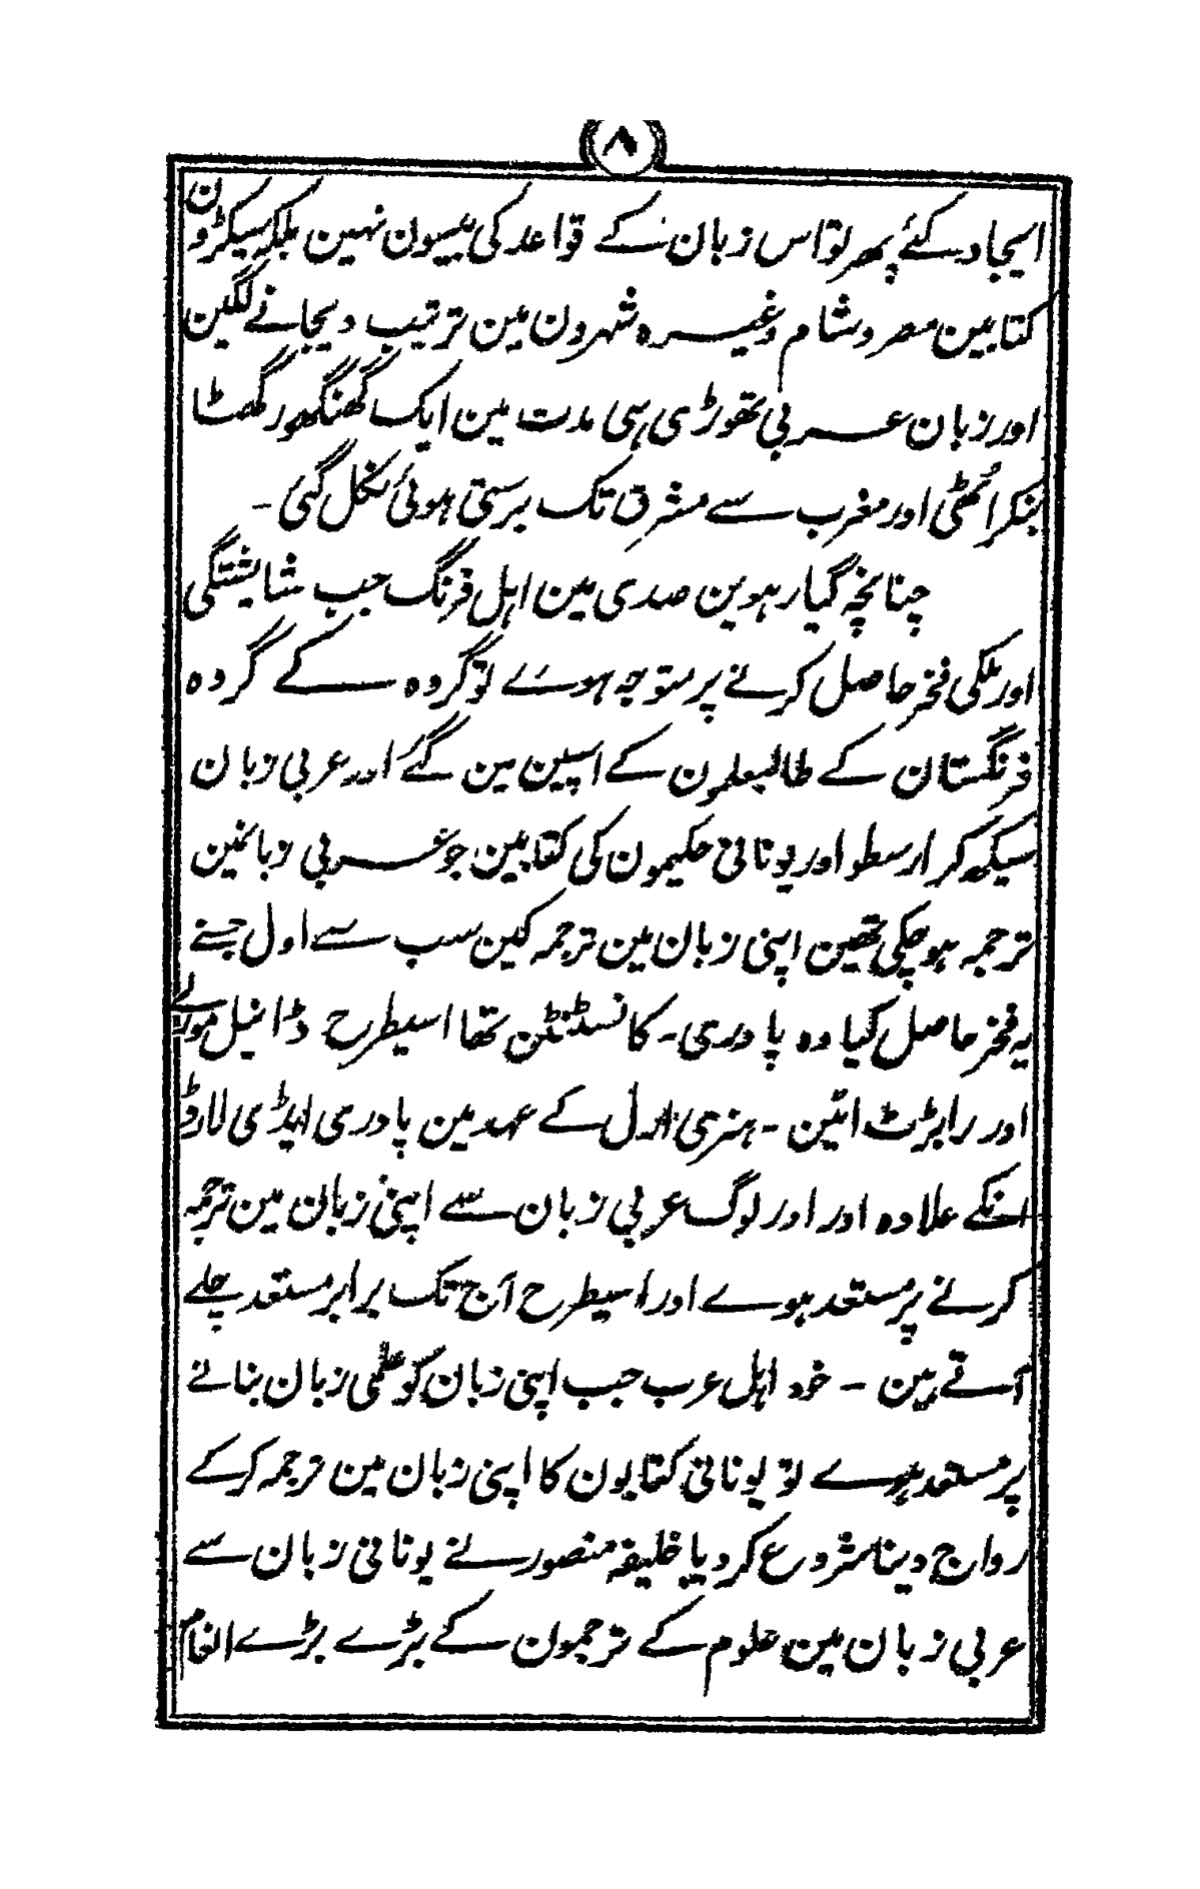 ۸
ایجاد کئے پھر تو اس زبان کے قواعد کی بیسیون نہین بلکہ سیکڑون
کتابین مصر و شام وغیرہ شہرون مین ترتیب دیجانے لگین
اور زبان عربی تھوڑی ہی مدت مین ایک گھنگھور گھٹا
بنکر اُٹھی اور مغرب سے مشرق تک برستی ہوئی نکل گئی -
چنانچہ گیارہوین صدی مین اہل فرنگ جب شایستگی
اور ملکی فخر حاصل کرنے پر متوجہ ہوے تو گروہ کے گروہ
فرنگستان کے طالبعلمون کے اسپین مین گئے اور عربی زبان
سیکھ کر ارسطو اور یونانی حکیمون کی کتابین جو عربی زبانمین
ترجمہ ہو چکی تھین اپنی زبان مین ترجمہ کین سب سے اول جسنے
یہ فخر حاصل کیا وہ پادری - کانسٹنٹن تھا اسیطرح ڈانیل مورلے
اور رابرٹ اٹین - ہنری اول کے عہد مین پادری ایڈی لارڈ
انکے علاوہ اور اور لوگ عربی زبان سے اپنی زبان مین ترجمہ
کرنے پر مستعد ہوے اور اسیطرح آج تک برابر مستعد چلے
آتے ہین - خود اہل عرب جب اپنی زبان کو علمی زبان بنانے
پر مستعد ہوے تو یونانی کتابون کا اپنی زبان مین ترجمہ کرکے
رواج دینا شروع کر دیا خلیفہ منصور نے یونانی زبان سے
عربی زبان مین علوم کے ترجمون کے بڑے بڑے انعام